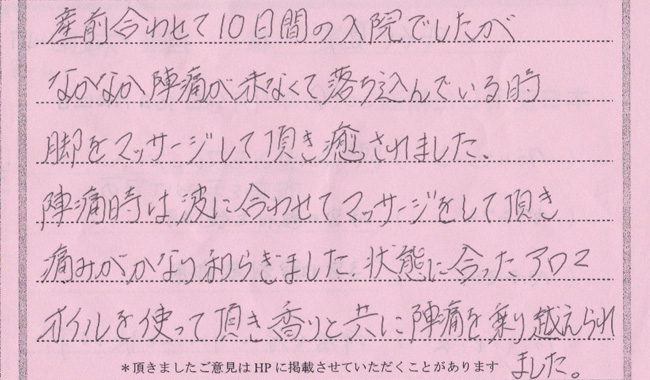 産前合わせて10日間の入院でしたが
なかなか陣痛が来なくて落ち込んでいる時
脚をマッサージして頂き癒されました。
陣痛時は波に合わせてマッサージをして頂き
痛みがかなり和らぎました。状態に合ったアロマ
オイルを使って頂き香りと共に陣痛を乗り越えられ
ました。
＊頂きましたご意見はHPに掲載させていただくことがあります